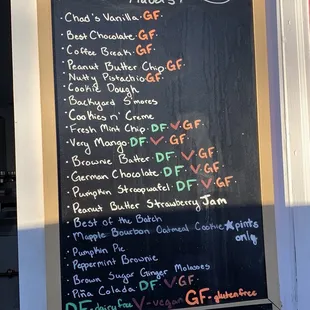 Chad's Vanilla GF.
Best Chocolate GF.
Coffee Break GF.
Peanut Butter Chip GF.
Nutty Pistachio GF.
Cookie Dough
Backyard S'mores
Cookies n' Creme
Fresh Mint Chip DF. V. GF.
Very Mango DF. V. GF.
Brownie Batter DF. V. GF.
German Chocolate DF. V. GF.
Pumpkin Stroopwafel DF. V. GF.
Peanut Butter Strawberry Jam
Best of the Batch
Maple Bourbon Oatmeal Cookie ★pints only
Pumpkin Pie
Peppermint Brownie
Brown Sugar Ginger Molasses
Piña Colada DF. V. GF.
DF-dairy free V-vegan GF-gluten free